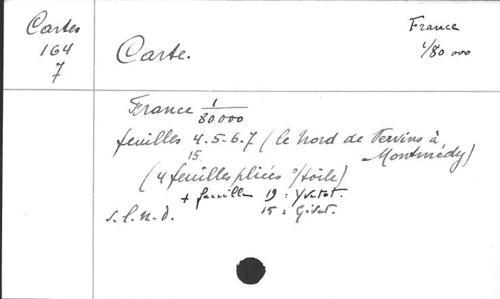 Cartes
164
7
Carte.
France
1/80 000
France 1/80000
feuilles 4.5.6.7 (le Nord de Vervins à
15
Montmédy)
(4 feuilles pliées s/toile)
+ feuilles 19 : Yvetot.
s.l.n.d. 15 : Givet.